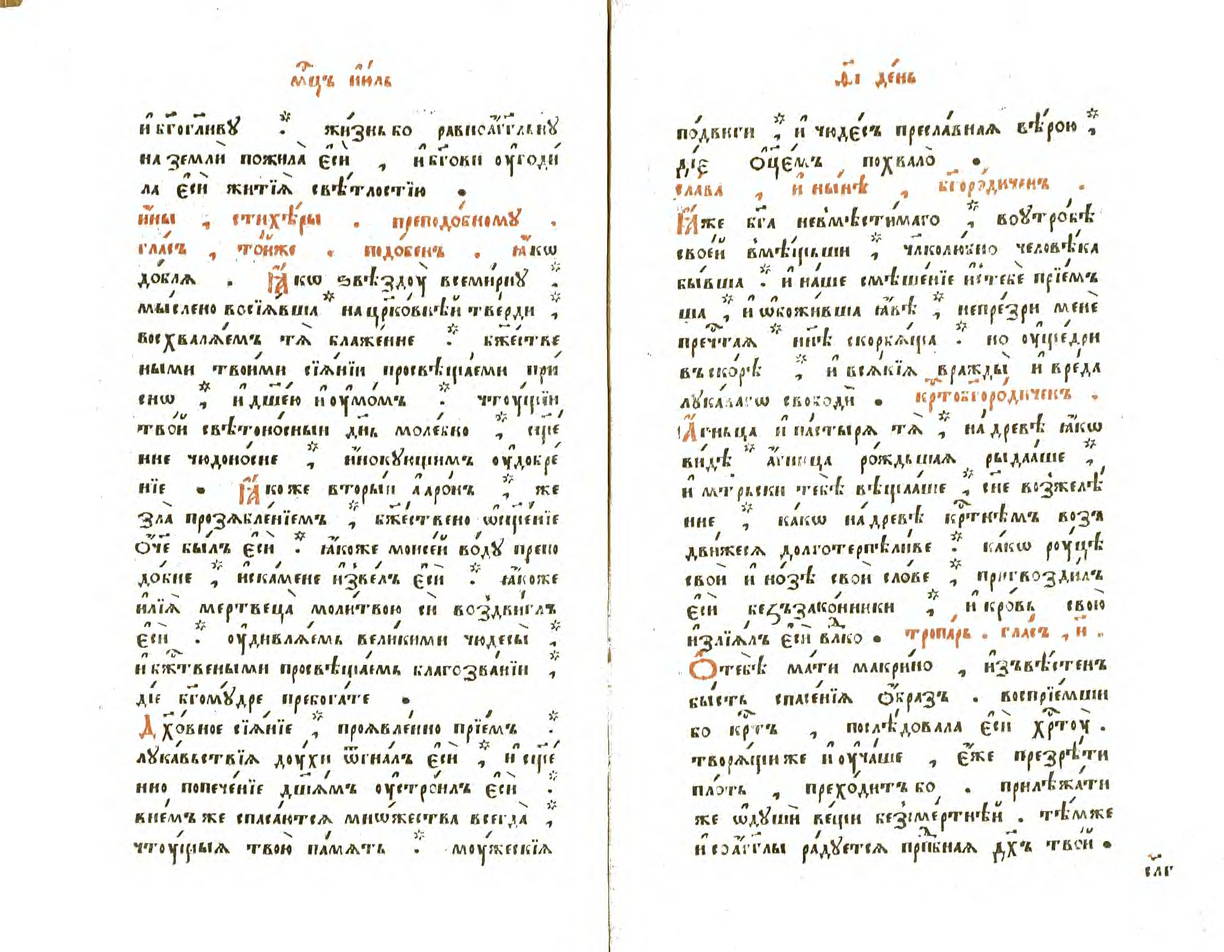 мцъ їюль
и҆ бг҃огливу ⁘ жи́знь бо равноа҆́гг҃льну
на земли̂ пожила̀ є҆сѝ , и҆ бг҃ови ᲂу҆годи́
ла є҆сѝ житїѧ̀ свѣ́тлостїю .
и҆́ны , стихѣ́ры . преподо́бному .
гла́съ , то́йже . подо́бенъ . ꙗ҆́кѡ
до́блѧ . Ꙗ҆́кѡ ѕвѣздоу̀ всемі́рну ⁘
мы́слено восїѧ́вша ⁘ на цр҃ко́внѣй тве́рди ⁘
восхвалѧ́емъ тѧ̀ блаже́нне ⁘ бж҃е́стве
ными твои́ми сїѧ́нїи просвѣща́еми при́
снѡ ⁘ и҆ дш҃е́ю и҆ ᲂу҆мо́мъ ⁘ чтоу́щїи
тво́й свѣтоно́сныи дн҃ь моле́бно ⁘ сщ҃е́
нне чюдоно́сне ⁘ и҆́нокующимъ ᲂу҆добре́
нїе . Ꙗ҆́коже вторы́й а҆аро́нъ ⁘ же
зла̀ прозѧбле́нїемъ ⁘ бж҃е́ствено ѡ҆сщ҃е́нїе
ѻ҆́ч҃е бы́лъ є҆сѝ ⁘ ꙗ҆́коже моисе́й во́ду препо
до́бне ⁘ и҆с ка́мене и҆зве́лъ є҆сѝ ⁘ ꙗ҆́коже
и҆лїѧ̀ мертвеца̀ моли́твою сѝ воздви́глъ
є҆сѝ ⁘ ᲂу҆дивлѧ́емь вели́кими чюдесы̀ ⁘
и҆ бж҃твеными просвѣща́емь благозва́нїи ⁘
ді́е бг҃ому́дре пребога́те .
Дх҃о́вное сїѧ́нїе ⁘ проѧвле́нно прїе́мъ ⁘
лука́вьствїѧ доу́хи ѿгна́лъ є҆сѝ ⁘ и҆ сщ҃е́
нно попече́нїе дш҃а́мъ ᲂу҆стро́илъ є҆сѝ ⁘
в не́мъ же спаса́ютсѧ мнѡ́жества всегда̀ ⁘
чтоу́щыѧ твою̀ па́мѧть ⁘ моу́жескїѧ
а҃і де́нь
по́двиги ⁘ и҆ чюде́съ пресла́внаѧ вѣ́рою ⁘
ді́е ѻ҆ц҃е́мъ похвало̀ .
сла́ва , и҆ ны́нѣ , бг҃оро́диченъ .
Ꙗ҆́же бг҃а невмѣсти́маго ⁘ во ᲂу҆тро́бѣ
свое́й вмѣ́щьши ⁘ чл҃колю́бно человѣ́ка
бы́вша ⁘ и҆ на́ше смѣше́нїе и҆с тебѐ прїе́мъ
ша ⁘ и҆ ѡ҆бо́живша ꙗ҆́вѣ ⁘ не пре́зри менѐ
пречт҃аѧ ⁘ нн҃ѣ скорбѧ́ща ⁘ но ᲂу҆ще́дри
въско́рѣ ⁘ и҆ всѧ́кїѧ вражды̀ и҆ вре́да
лука́вагѡ свободѝ . кр҃тобг҃оро́диченъ .
А҆́гньца и҆ па́стырѧ тѧ̀ ⁘ на дре́вѣ ꙗ҆́кѡ
ви́дѣ ⁘ а҆́гница ро́ждьшаѧ рыда́аше ⁘
и҆ мт҃рьски тебѣ̀ вѣща́аше ⁘ сн҃е возжелѣ́
нне ⁘ ка́кѡ на дре́вѣ кр҃тнѣмъ воз̾
дви́жесѧ долготерпѣ́ливе ⁘ ка́кѡ роу́цѣ
свои̂ и҆ но́зѣ свои̂ сло́ве ⁘ пригвозди́лъ
є҆сѝ безъзако́нники ⁘ и҆ кро́вь свою̀
и҆злїѧ́лъ є҆сѝ влⷣко . тропа́рь . гла́съ , и҃ .
Ѻ҆ тебѣ̀ ма́ти макри́но , и҆звѣ́стенъ
бы́сть спасе́нїѧ ѻ҆́бразъ . воспрїе́мши
бо кр҃тъ , послѣ́довала є҆сѝ хр҃тоу̀ .
творѧ́щи же и҆ ᲂу҆ча́ше , є҆́же презрѣ́ти
пло́ть , прехо́дитъ бо . прилѣжа́ти
же ѡ҆ дꙋшѝ ве́щи безсме́ртнѣй . тѣ́мже
и҆ со а҆́гг҃лы ра́дуетсѧ прп҃бнаѧ дх҃ъ тво́й .
сл҃г